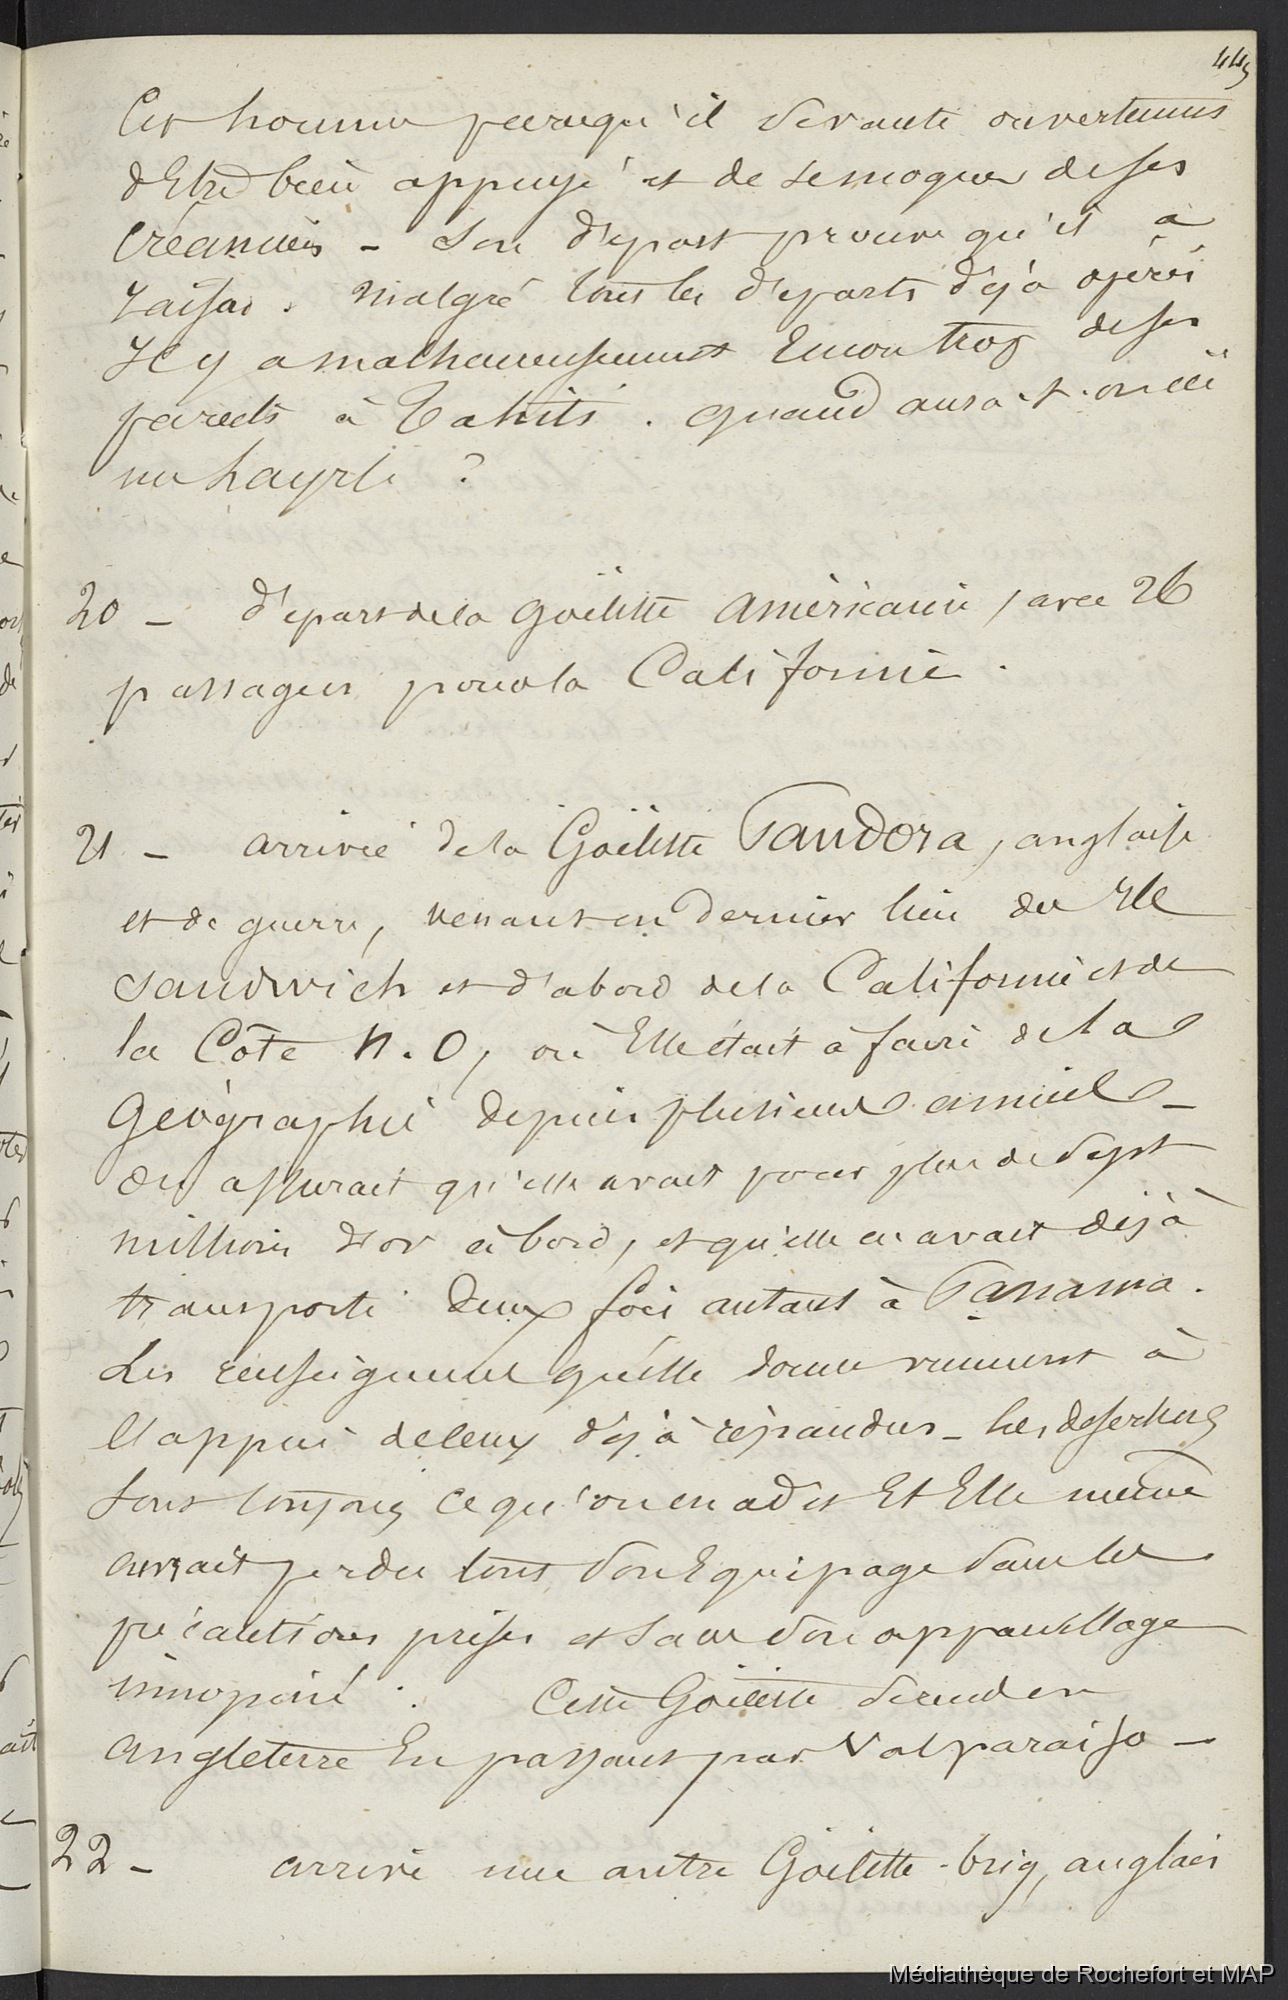 445
Cet homme parcequ'il se vante ouvertement
d'Etre bien appuyé et de se moquer de ses
créanciers - Son départ prouve qu'il a
raison. Malgré tous les départs déjà opérés
Il y a malheureusement Encore trop de ses
pareils à Tahiti. quand aura-t-on ici
un hayrli ?
20 - départ de la Goëlette américaine, avec 26
passagers pour la Californie.
21 - arrivée de la Goëlette Pandora, anglaise
et de guerre, venant en dernier lieu des Iles
Sandwich et d'abord de la Californie et de
la Côte N.O, où Elle était à faire de la
Géographie depuis plusieurs années -
On assurait qu'elle avait pour plus de sept
millions d'or à bord, et qu'elle en avait déjà
transporté deux fois autant à Panama.
Les renseignemt qu'elle donne viennent à
l'appui de ceux déjà répandus - les déserteurs
sont toujours ce qu'on en a dit Et Elle même
aurait perdu tout son Equipage sans les
précautions prises et sans son appareillage
innopiné. Cette Goëlette se rend en
angleterre En passant par Valparaiso -
22 - arrivé une autre Goëlette-brig, anglais
Médiathèque de Rochefort et MAP